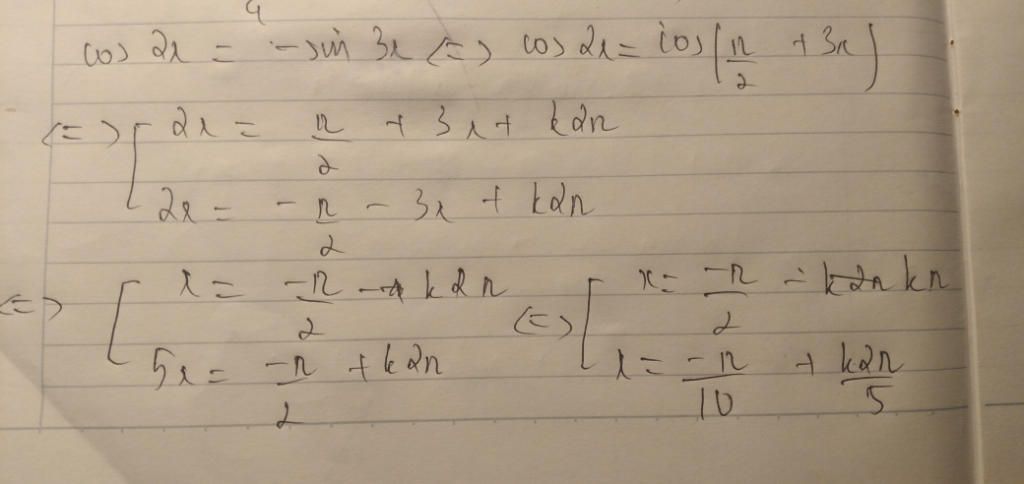 cos 2x = -sin 3x <=> cos 2x = cos(π/2 + 3x)
<=> [ 2x = π/2 + 3x + k2π
2x = -π/2 - 3x + k2π
<=> [ x = -π/2 - k2π <=> [ x = -π/2 - kπ
5x = -π/2 + k2π x = -π/10 + k2π/5